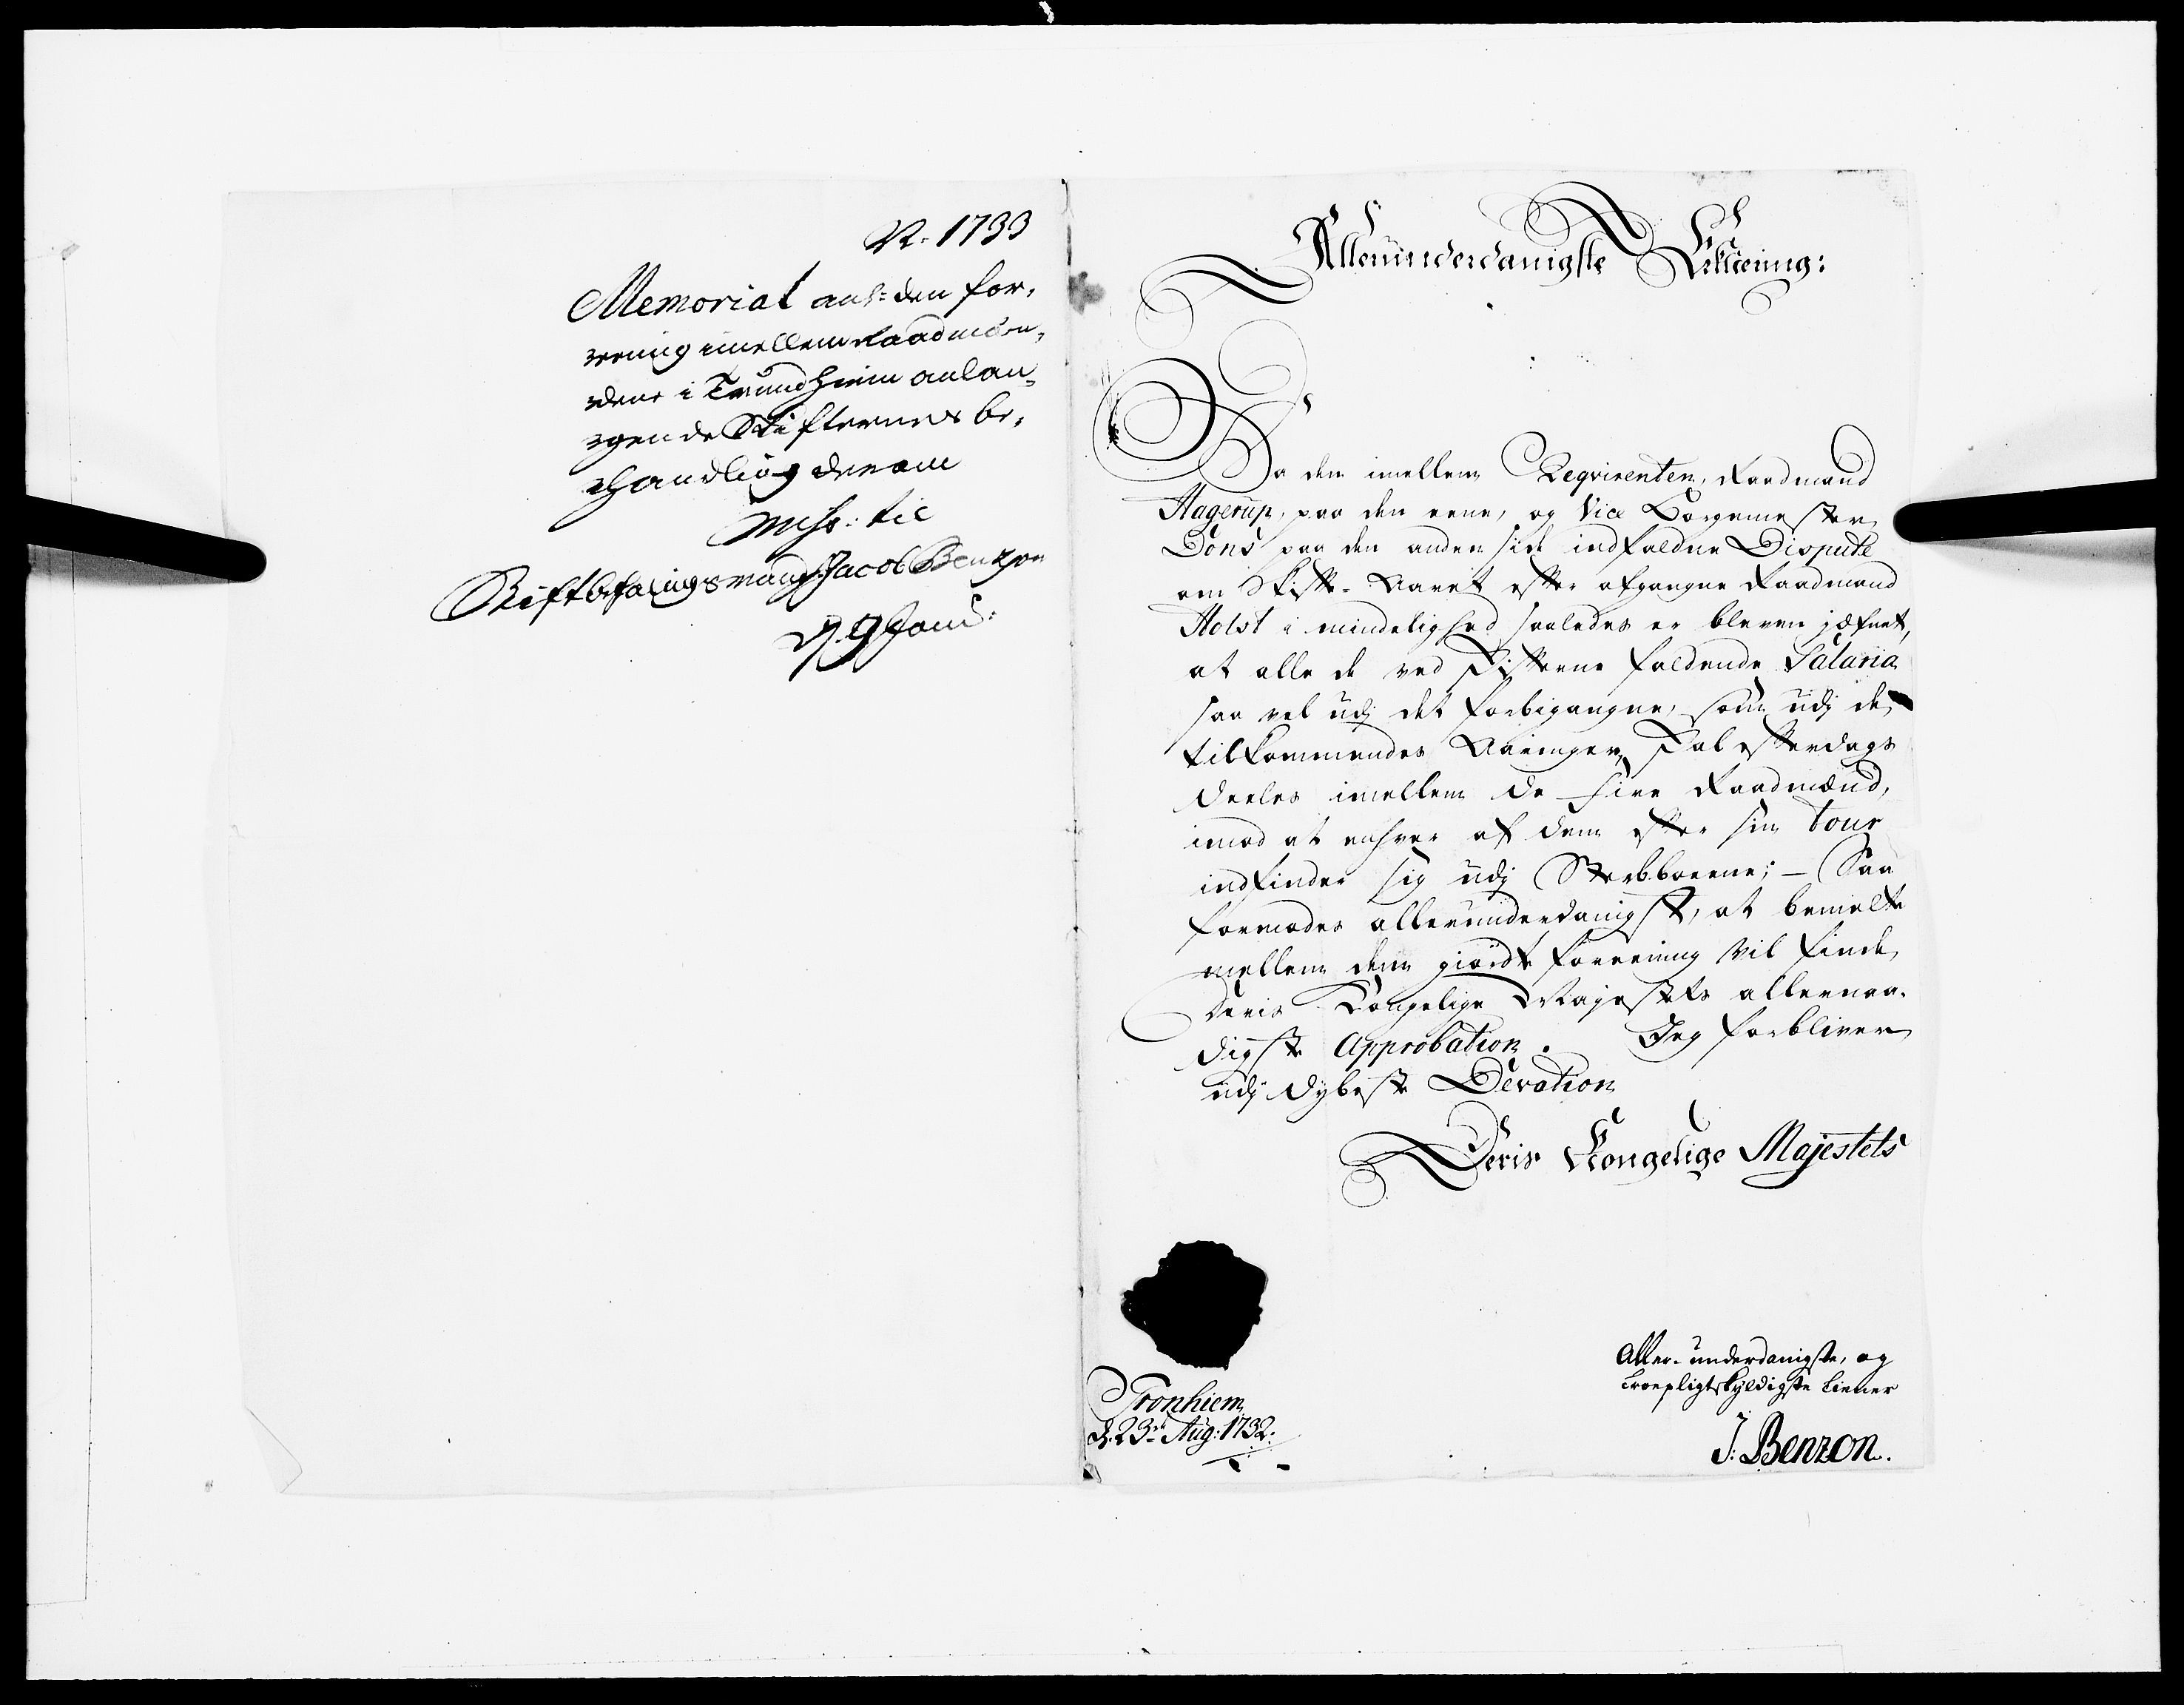 N. 1733
Memorial anl: den for,
eening imellem Raadmæn,
dene i Trundhiem anlan,
gende Skifternes be,
handling derom
Miss: til
Stiftbefalingsmand Jacob Benzon
d. 9 Janu:
Allerunderdanigste Erklæring:
Da den imellem Reqvirenten, Raadmand
Hagerup, paa den eene, og Vice Borgemester
Dons paa den anden side indfaldne Dispute
om Skifte-Naaet efter afgangne Raadmand
Holst i mindelighed saaledes er bleven jæfnet,
at alle de ved Skifterne faldende Salaria
saa vel udj det forbigangne, som udj de
tilkommendes Aaringer, skal efterdags
deeles imellem de fire Raadmænd,
imod at enhver af dem efter sin Tour
indfinder sig udj Sterbboerne; – Saa
formodes allerunderdanigst, at bemelte
mellem dem giorde foreening vil finde
Deris Kongelige Majestets allernaa-
digste Approbation. Jeg forbliver
udj dybeste Devotion
Deris Kongelige Majestets
Tronhiem
d. 23de Aug: 1732.
Aller-underdanigste, og
troepligtskyldigste tiener
J: Benzon.